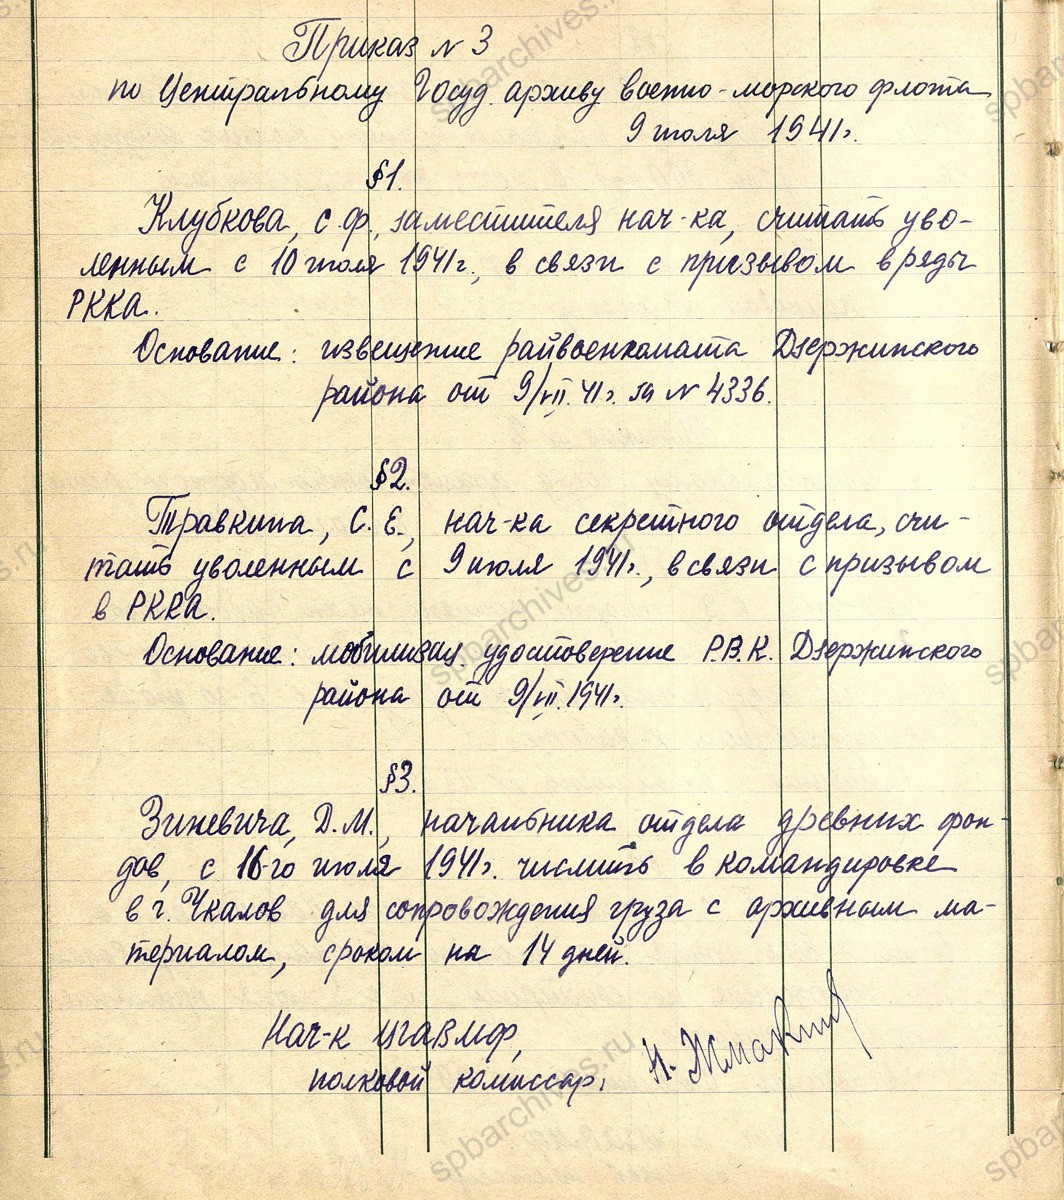 Приказ № 3
по Центральному Госуд. архиву военно-морского флота
9 июля 1941г.
§1.
Клубкова, С.Ф., заместителя нач-ка, считать уво-
ленным с 10 июля 1941г., в связи с призывом в ряды
РККА.
Основание: извещение райвоенкомата Дзержинского
района от 9/VII.41г. за № 4336.
§2.
Травкина, С.Е., нач-ка секретного отдела, счи-
тать уволенным с 9 июля 1941г., в связи с призывом
в РККА.
Основание: мобилизац. удостоверение Р.В.К. Дзержинского
района от 9/VII.1941г.
§3.
Зиневича, Д.М., начальника отдела древних фон-
дов, с 16-го июля 1941г. числить в командировке
в г. Чкалов для сопровождения груза с архивным ма-
териалом, сроком на 14 дней.
Нач-к ЦГАВМФ,
полковой комиссар:
И. Жмакин
spbarchives.ru